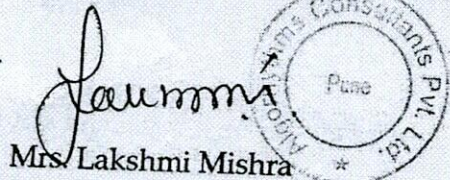 Algorhythms Consultants Pvt. Ltd.
Pune
*
Mrs. Lakshmi Mishra